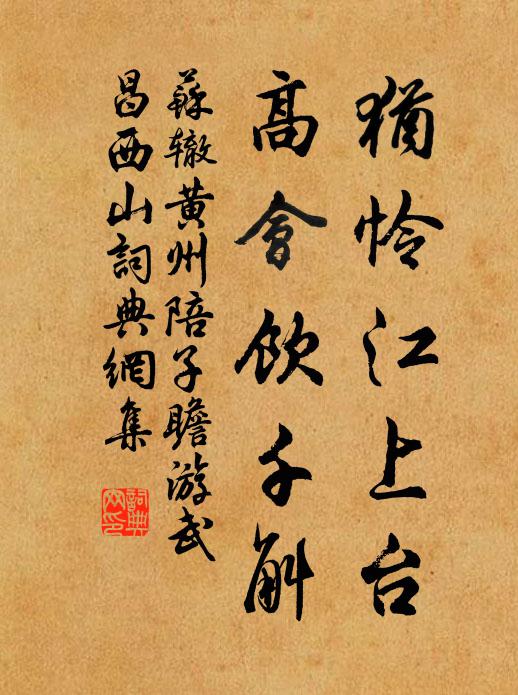 猶怜江上台
高會飲千斛
蘇辙黄州陪子瞻游武
昌西山詞典網集
詞典
网印